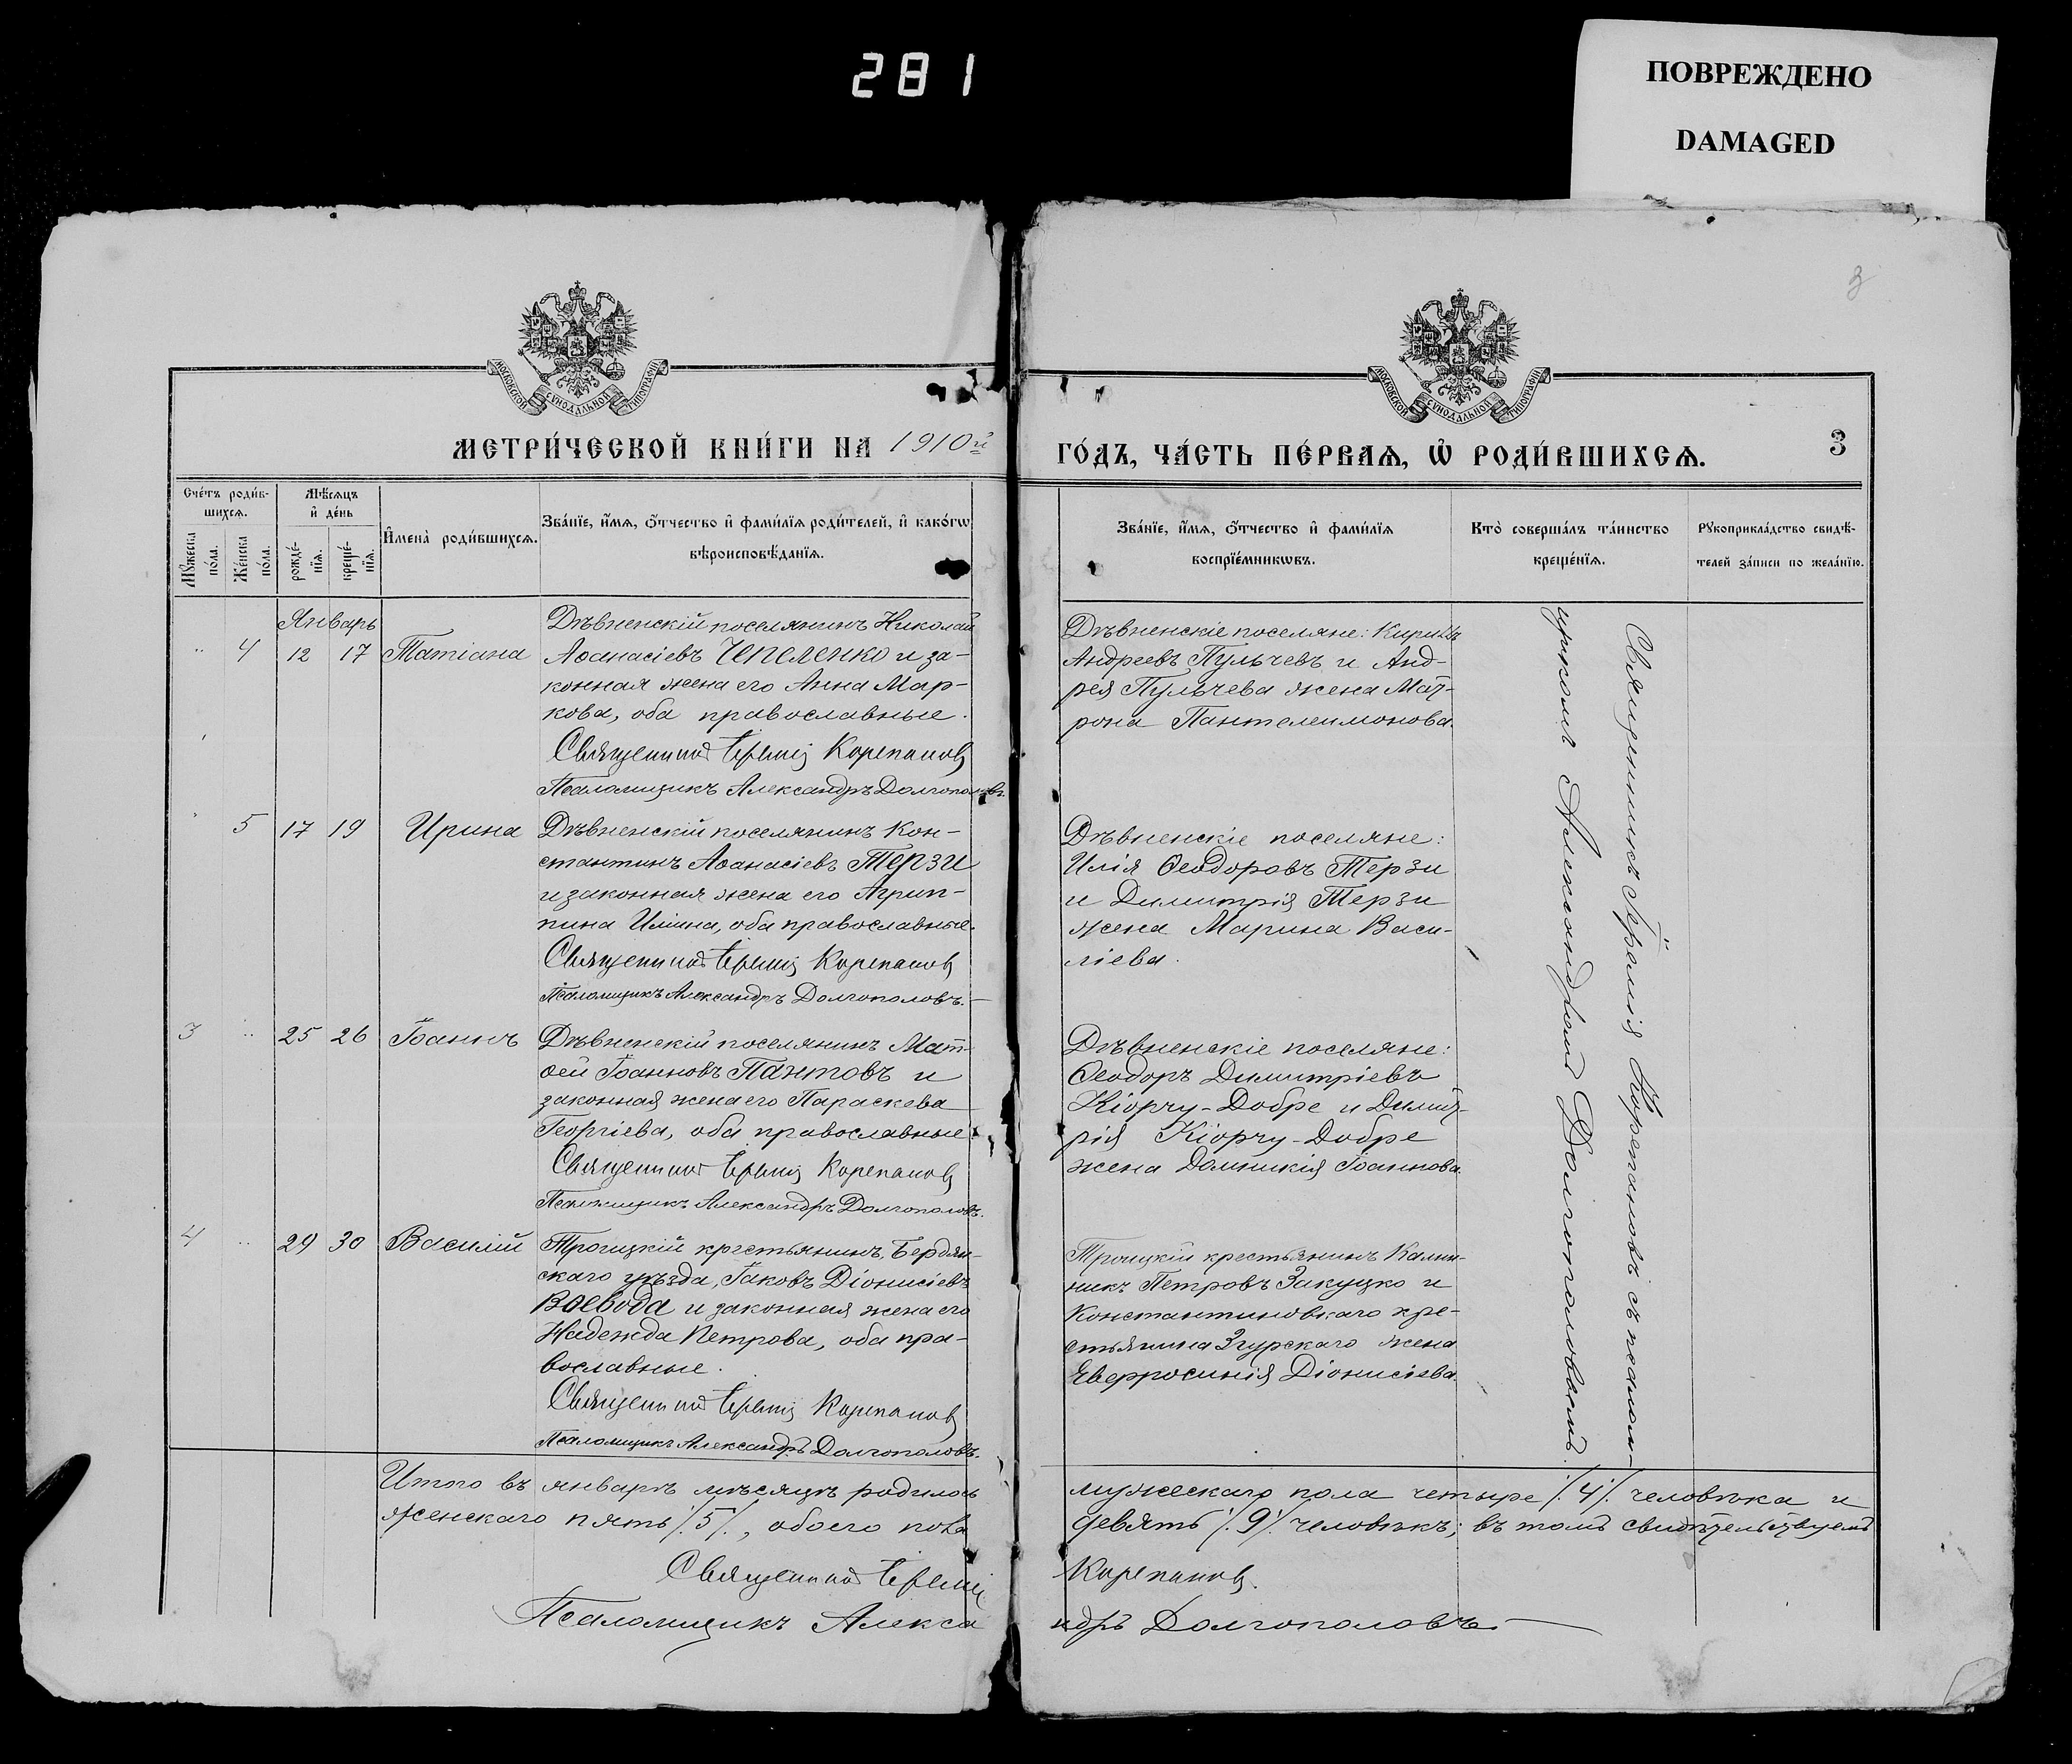 281
ПОВРЕЖДЕНО
DAMAGED
3
МОСКОВСКОЙ СѴНОДАЛЬНОЙ ТИПОГРАФІИ
МОСКОВСКОЙ СѴНОДАЛЬНОЙ ТИПОГРАФІИ
МЕТРИ́ЧЕСКОЙ КНИ́ГИ НА 1910й
ГО́ДЪ, ЧА́СТЬ ПЕ́РВАѦ, Ѡ҆ РОДИ́ВШИХСѦ.
3
Сче́тъ роди́в-
шихсѧ.
Мѣ́сѧцъ
и҆ де́нь
Мꙋ́жеска по́ла.
Же́нска по́ла.
рожде́-
нїѧ.
креще́-
нїѧ.
И҆мена̀ роди́вшихсѧ.
Зва́нїе, и҆́мѧ, ѻ҆́тчество и҆ фами́лїѧ роди́телей, и҆ како́гѡ
вѣроисповѣ́данїѧ.
Зва́нїе, и҆́мѧ, ѻ҆́тчество и҆ фами́лїѧ
воспрїе́мникѡвъ.
Кто̀ соверша́лъ та́инство
креще́нїѧ.
Рꙋкоприкла́дство свидѣ́-
телей за́писи по жела́нїю.
Январь
" 4 12 17 Татіана
Дѣвненскій поселянинъ Николай
Аѳанасіевъ Чепеленко и за-
конная жена его Анна Мар-
кова, оба православные.
Священникъ Іеремія Корепановъ
Псаломщикъ Александръ Долгополовъ.
Дѣвненскіе поселяне: Кириллъ
Андреевъ Пульчевъ и Анд-
рея Пульчева жена Мат-
рона Пантелеимонова.
" 5 17 19 Ирина
Дѣвненскій поселянинъ Кон-
стантинъ Аѳанасіевъ Терзи
и законная жена его Агрип-
пина Иліина, оба православные.
Священникъ Іеремія Корепановъ
Псаломщикъ Александръ Долгополовъ.
Дѣвненскіе поселяне:
Илія Ѳеодоровъ Терзи
и Димитрія Терзи
жена Марина Васи-
ліева.
3 " 25 26 Іоаннъ
Дѣвненскій поселянинъ Мат-
ѳей Іоанновъ Пантовъ и
законная жена его Параскева
Георгіева, оба православные.
Священникъ Іеремія Корепановъ
Псаломщикъ Александръ Долгополовъ.
Дѣвненскіе поселяне:
Ѳеодоръ Димитріевъ
Кіорчу-Добре и Димит-
рія Кіорчу-Добре
жена Домникія Іоаннова.
4 " 29 30 Василій
Троицкій крестьянинъ, Бердян-
скаго уѣзда, Іаковъ Діонисіевъ
Воевода и законная жена его
Надежда Петрова, оба пра-
вославные.
Священникъ Іеремія Корепановъ
Псаломщикъ Александръ Долгополовъ.
Троицкій крестьянинъ Калин-
никъ Петровъ Закуцко и
Константиновскаго кре-
стьянина Згурскаго жена
Евфросинія Діонисіева.
Священникъ Іеремія Корепановъ съ псалом-
щикомъ Александромъ Долгополовымъ.
Итого въ январѣ мѣсяцѣ родилось
мужескаго пола четыре /.4/. человѣка и
женскаго пять /.5/., обоего пола
девять /.9/. человѣкъ; въ томъ свидѣтельствуемъ
Священникъ Іеремія
Корепановъ.
Псаломщикъ Алекса
ндръ Долгополовъ.